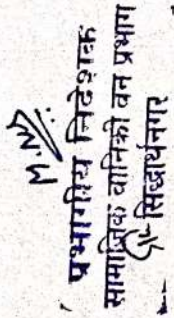 प्रभागीय निदेशक
सामाजिक वानिकी वन प्रभाग
सिद्धार्थनगर